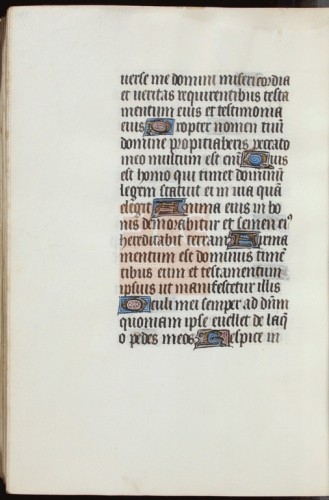 uerse me domini misericordia
et veritas requirentibus testa
mentum eius et testimonia
eius Propter nomen tuū
domine propitiaberis peccato
meo multum est eni Quis
est homo qui timet dominū
legem statuit ei in uia quā
elegit Anima eius in bo
nis demorabitur et semen ei᾿
hereditabit terram Firma
mentum est dominus timē
tibus eum et testamentum
ipsius ut manifestetur illis
Oculi mei semper ad dnm̄
quoniam ipse euellet de laq̄
o pedes meos Respice in